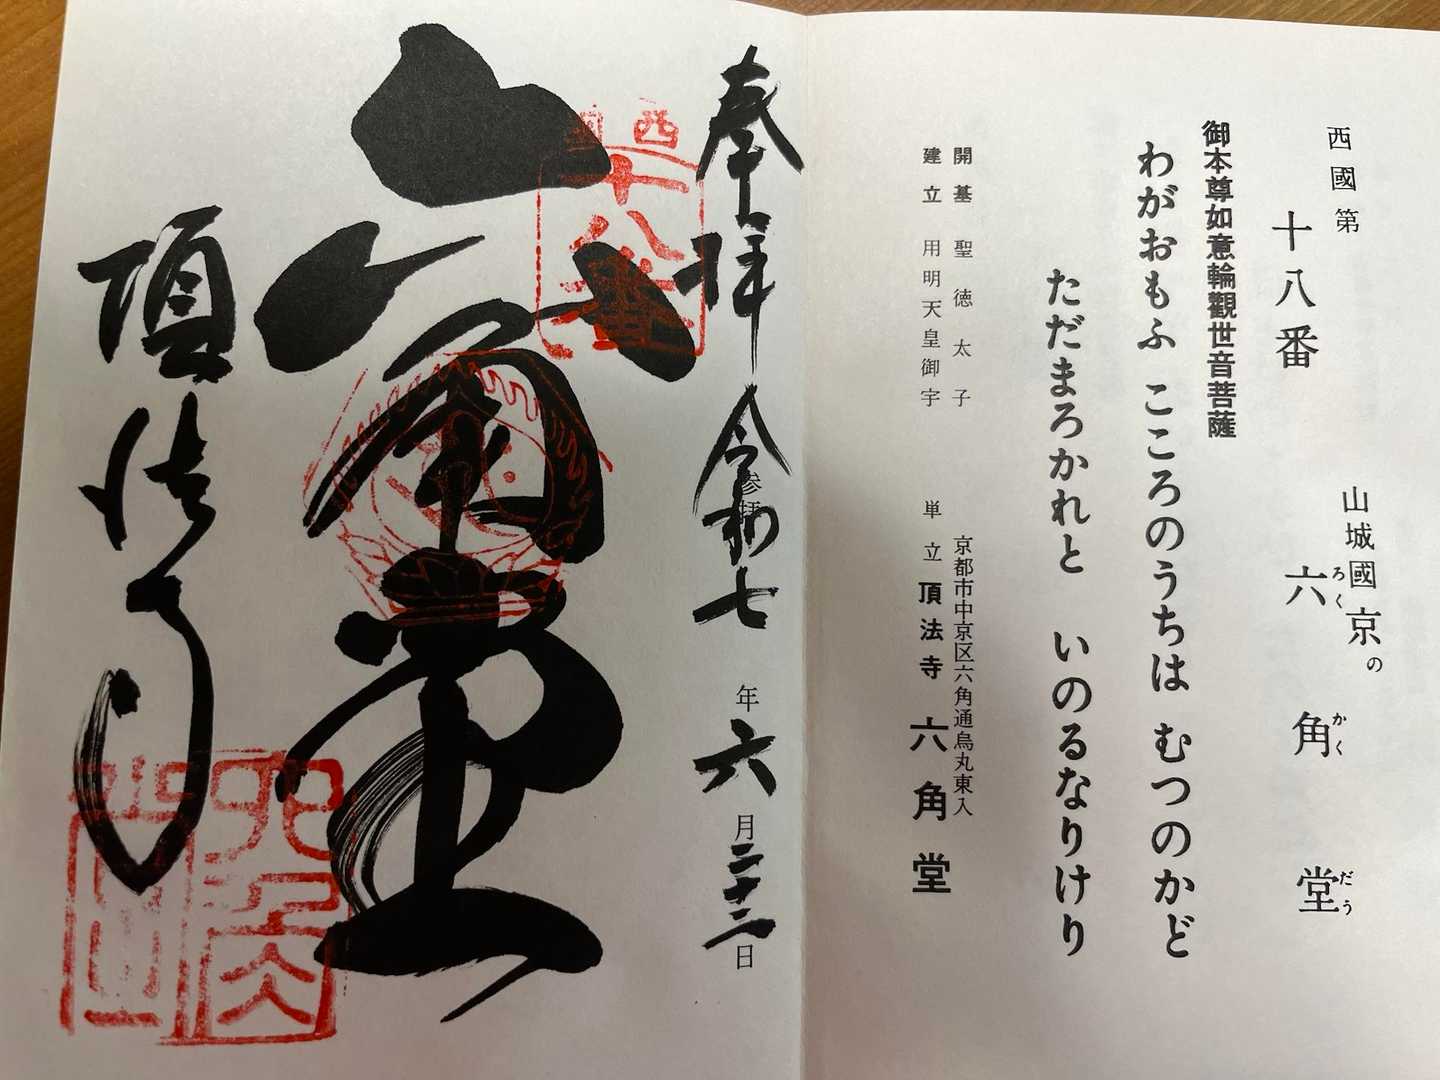 西國第
十八番
山城國京の
六角堂
ろくかくだう
御本尊如意輪觀世音菩薩
わがおもふ こころのうちは むつのかど
ただまろかれと いのるなりけり
開基 聖徳太子
建立 用明天皇御宇
京都市中京区六角通烏丸東入
単立 頂法寺 六角堂
奉拝 令和七年六月二十二日
参拝
西国
十八番
六角堂
頂法寺